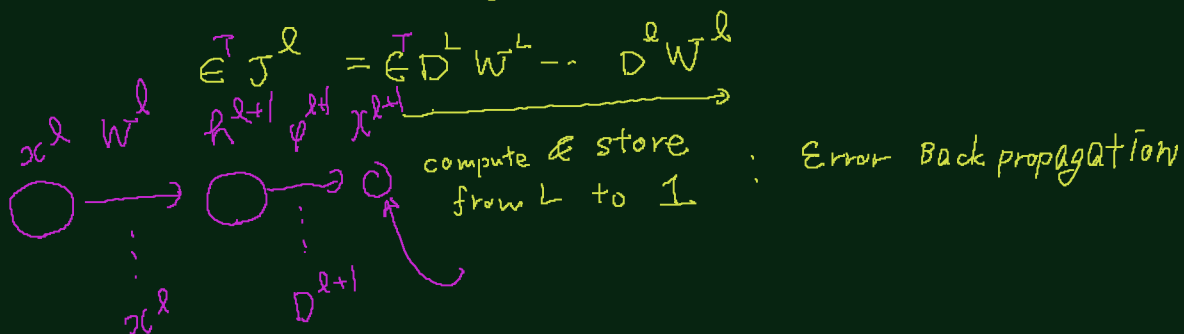 ∈ᵀ J^l = ∈ᵀ D^L W^L -- D^l W^l
x^l W^l h^{l+1} φ^{l+1} x^{l+1}
compute & store
from L to 1
: Error Back propagation
x^l D^{l+1}